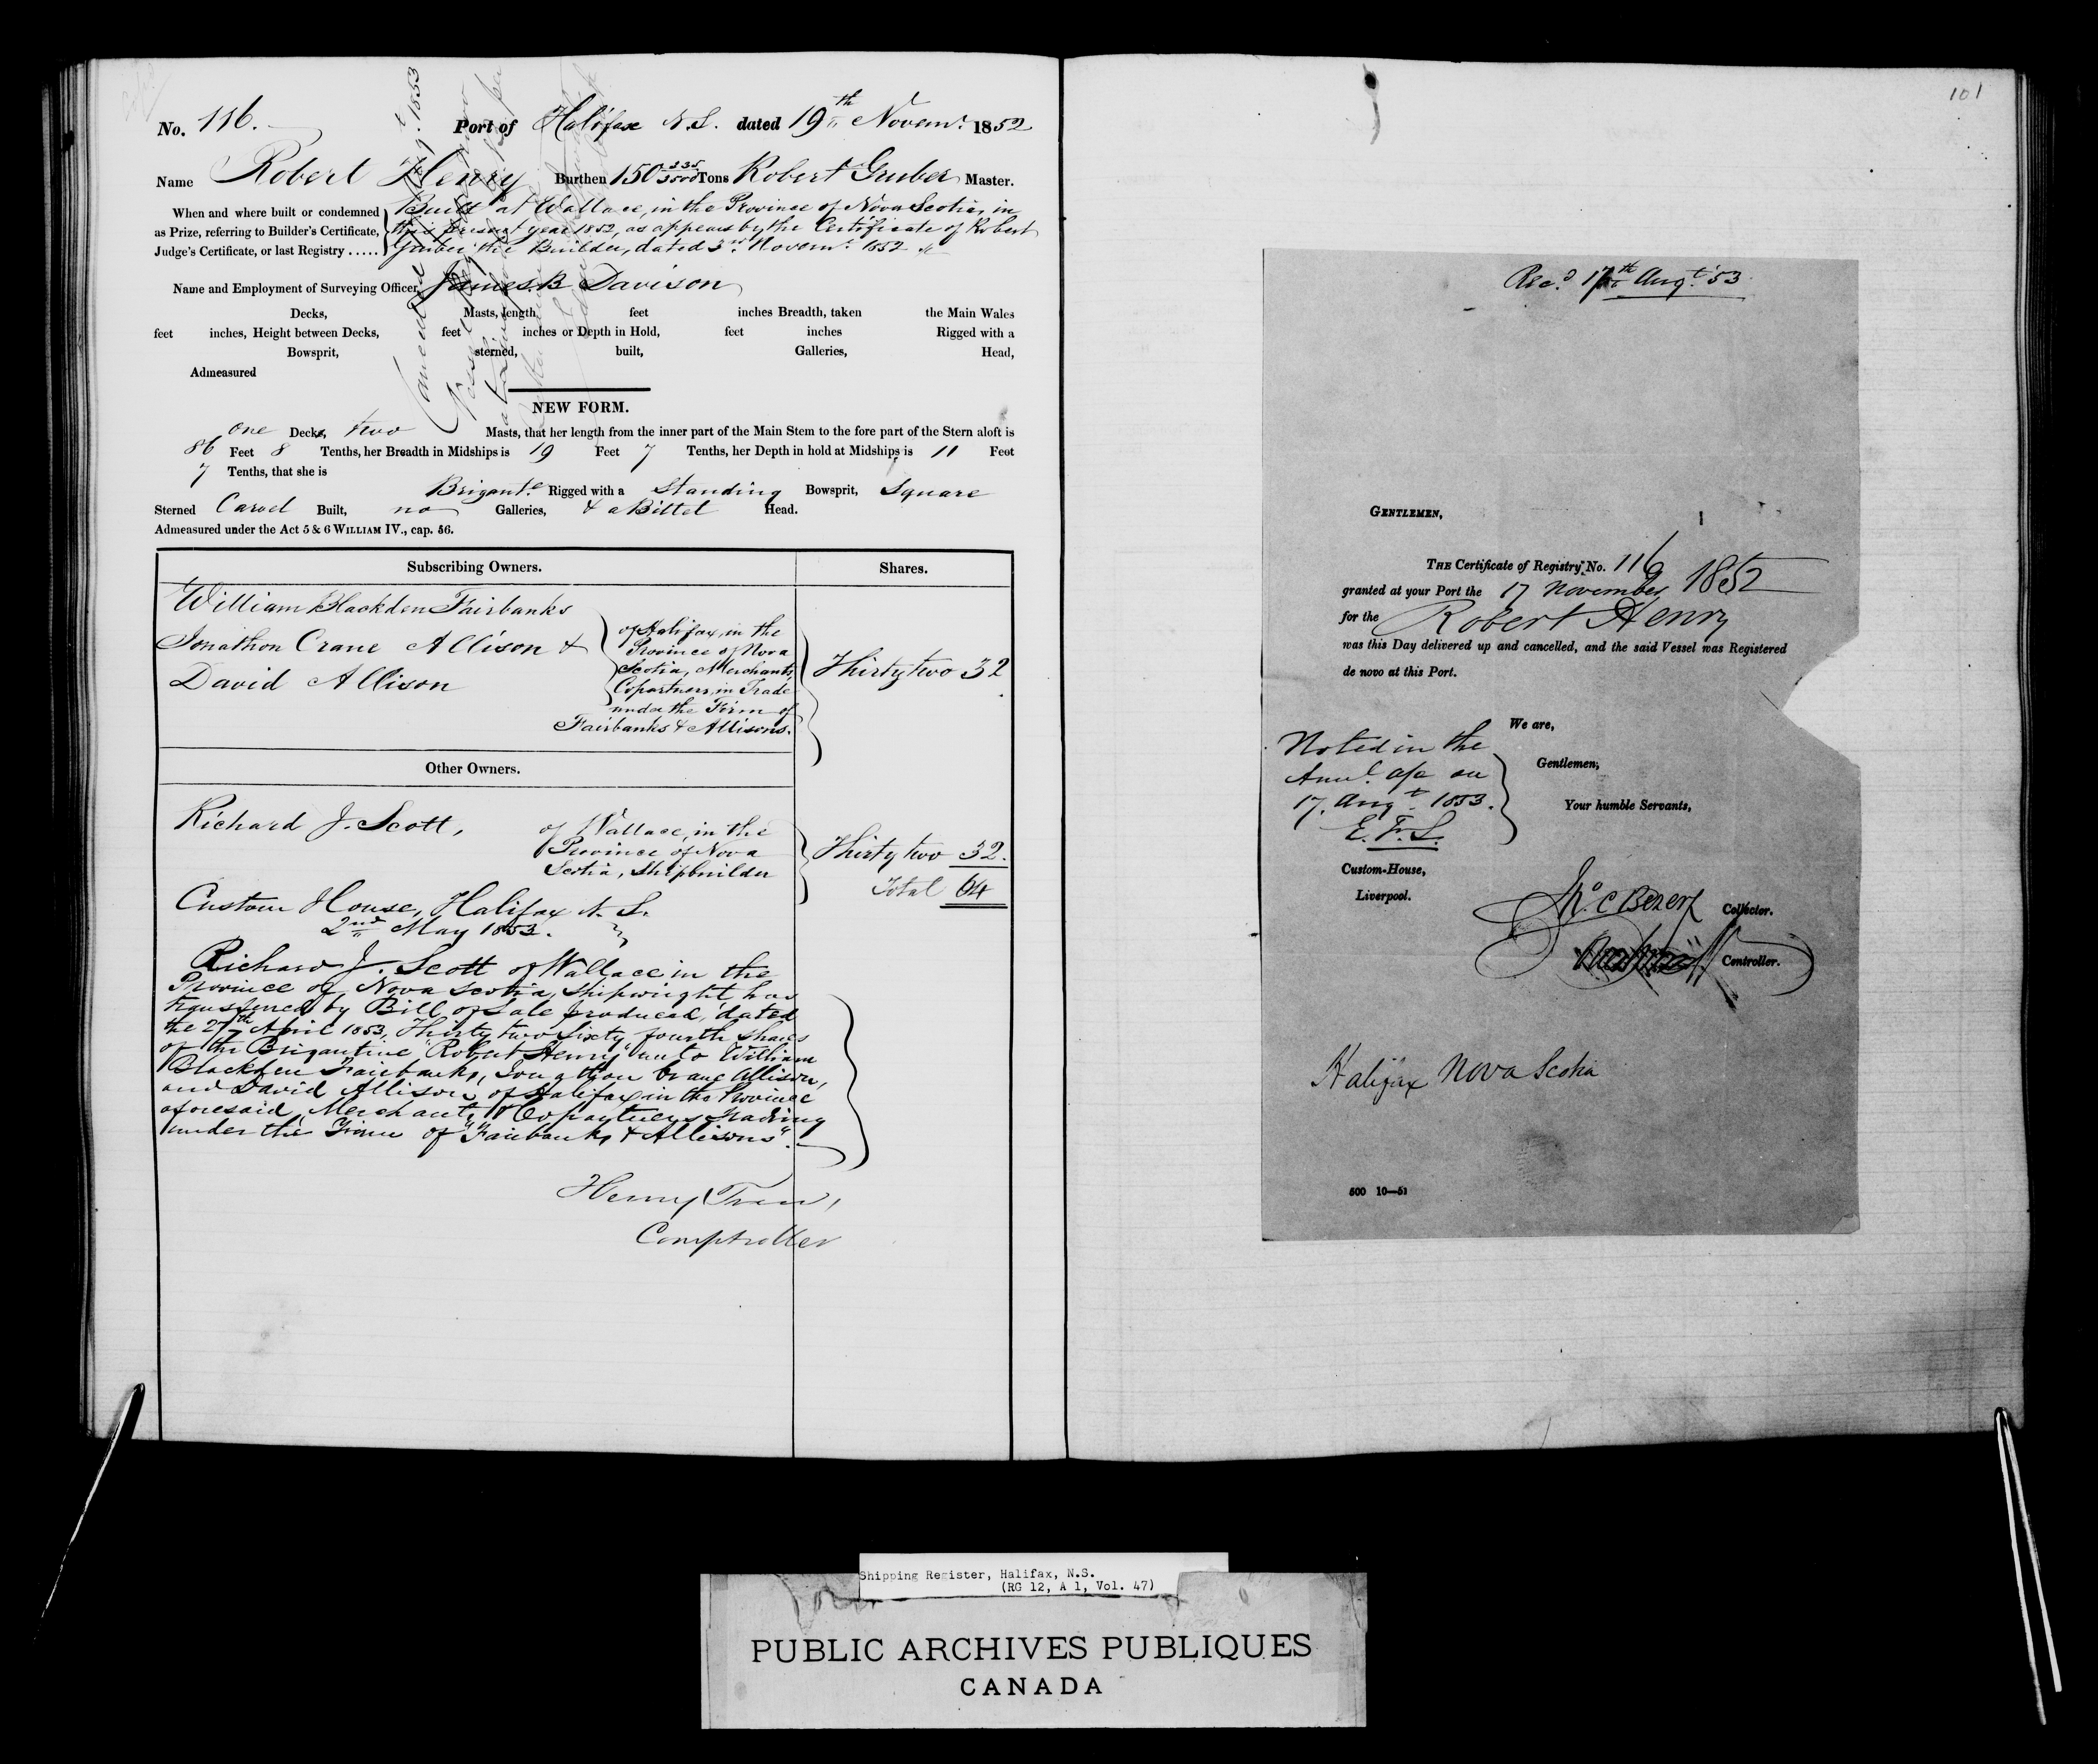 No. 116. Port of Halifax N.S. dated 19th Novemr. 1852
Name Robert Henry Burthen 150 235/3500 Tons Robert Gruber Master.
When and where built or condemned
as Prize, referring to Builder's Certificate,
Judge's Certificate, or last Registry .....
Built at Wallace, in the Province of Nova Scotia, in
this present year 1852, as appears by the Certificate of Robert
Gruber the Builder, dated 3rd Novemr. 1852
Name and Employment of Surveying Officer, James B Davison
Decks, Masts, length feet inches Breadth, taken the Main Wales
feet inches, Height between Decks, feet inches or Depth in Hold, feet inches Rigged with a
Bowsprit, sterned, built, Galleries, Head,
Admeasured
NEW FORM.
one Decks, two Masts, that her length from the inner part of the Main Stem to the fore part of the Stern aloft is
86 Feet 8 Tenths, her Breadth in Midships is 19 Feet 7 Tenths, her Depth in hold at Midships is 11 Feet
7 Tenths, that she is
Brigante Rigged with a Standing Bowsprit, Square
Sterned Carvel Built, no Galleries, & a Billet Head.
Admeasured under the Act 5 & 6 WILLIAM IV., cap. 56.
Cancelled 1853
Subscribing Owners. Shares.
William Blackden Fairbanks
Jonathon Crane Allison &
David Allison
of Halifax, in the
Province of Nova
Scotia, Merchants,
Copartners, in Trade
under the Firm of
Fairbanks & Allisons.
Thirty two 32
Other Owners.
Richard J. Scott, of Wallace, in the
Province of Nova
Scotia, Shipbuilder
Thirty two 32.
Total 64
Custom House, Halifax N. S.
2nd May 1853.
Richard J. Scott of Wallace in the
Province of Nova Scotia, Shipwright has
transferred by Bill of Sale produced, dated
the 27th April 1853, Thirty two Sixty fourth shares
of the Brigantine "Robert Henry" unto William
Blackden Fairbanks, Jonathon Crane Allison,
and David Allison, of Halifax in the Province
aforesaid, Merchants & Copartners trading
under the Firm of "Fairbanks & Allisons".
Henry Trew,
Comptroller
101
Recd. 17th Augt. 53
GENTLEMEN,
THE Certificate of Registry No. 116
granted at your Port the 17 November 1852
for the Robert Henry
was this Day delivered up and cancelled, and the said Vessel was Registered
de novo at this Port.
We are,
Gentlemen,
Your humble Servants,
Noted in the
Annl. a/c on
17. Augt. 1853.
E. F. S.
Custom-House,
Liverpool.
Collector.
Controller.
Halifax Nova Scotia
500 10—51
Shipping Register, Halifax, N.S.
(RG 12, A 1, Vol. 47)
PUBLIC ARCHIVES PUBLIQUES
CANADA